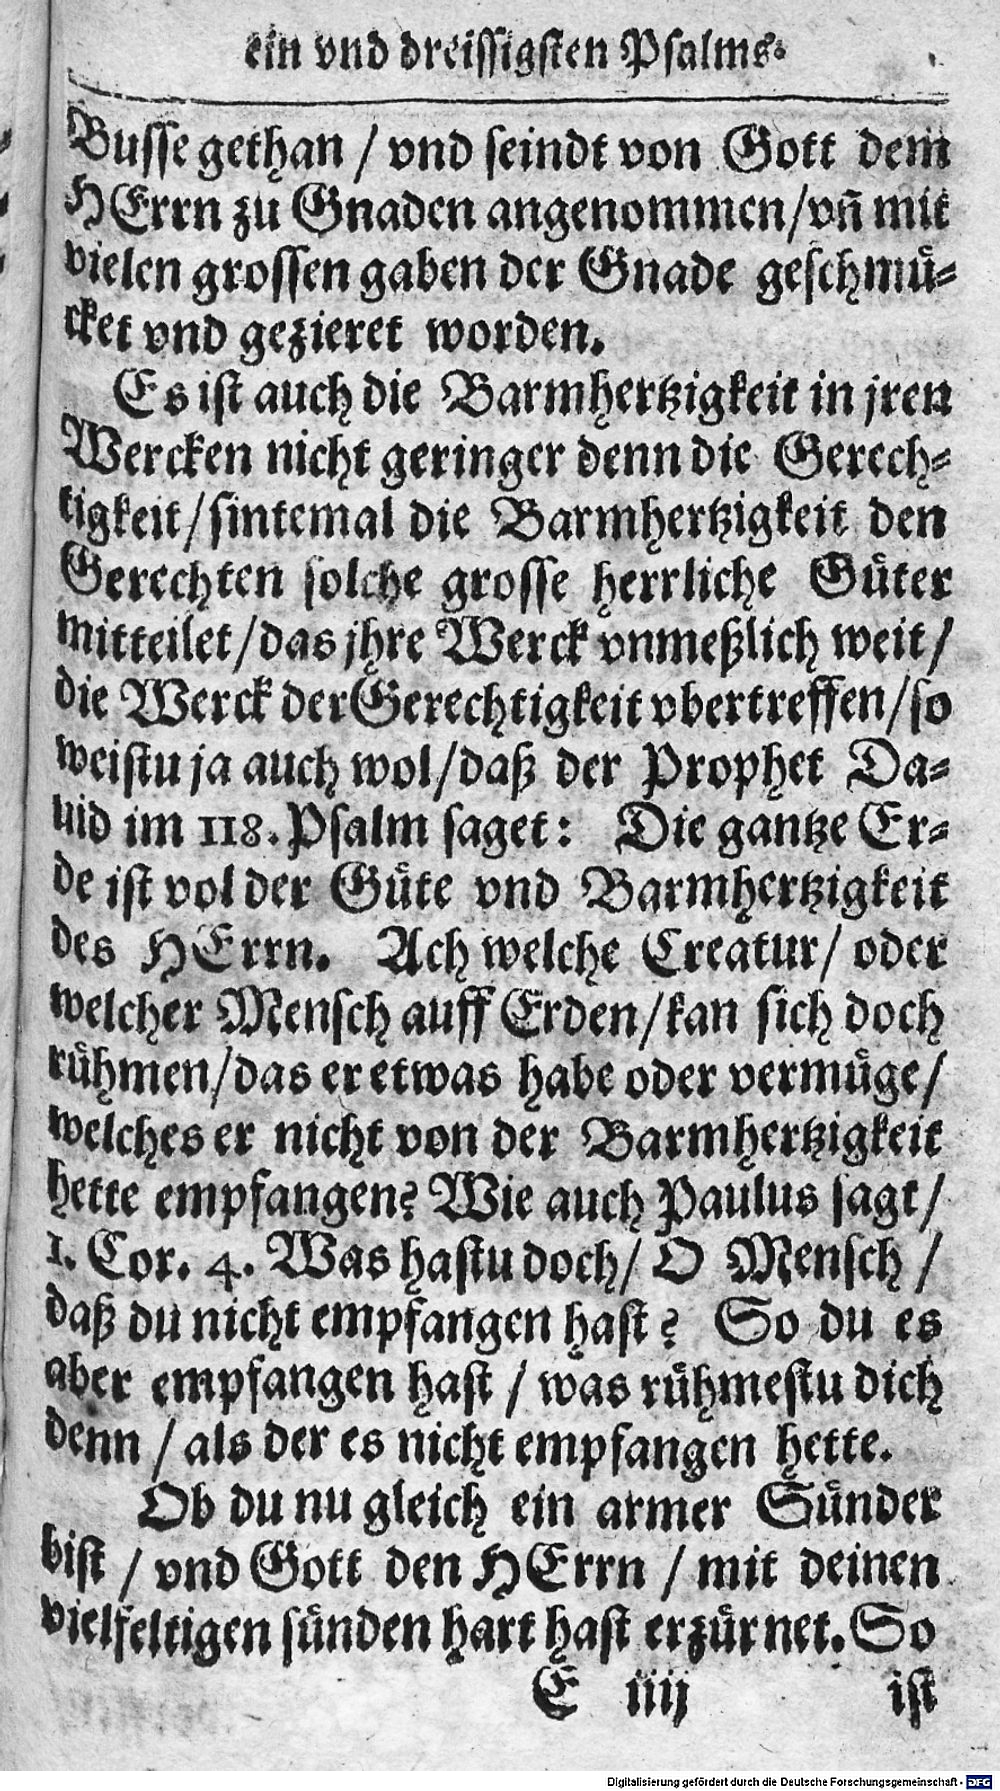 ein vnd dreissigsten Psalms.
Busse gethan / vnd seindt von Gott dem
HErrn zu Gnaden angenommen/vñ mit
vielen grossen gaben der Gnade geschmuͤ-
cket vnd gezieret worden.
Es ist auch die Barmhertzigkeit in jren
Wercken nicht geringer denn die Gerech-
tigkeit/sintemal die Barmhertzigkeit den
Gerechten solche grosse herrliche Guͤter
mitteilet/das jhre Werck vnmeßlich weit/
die Werck der Gerechtigkeit vbertreffen/so
weistu ja auch wol/daß der Prophet Da-
uid im 118. Psalm saget: Die gantze Er-
de ist vol der Guͤte vnd Barmhertzigkeit
des HErrn. Ach welche Creatur/ oder
welcher Mensch auff Erden/kan sich doch
ruͤhmen/das er etwas habe oder vermuͤge/
welches er nicht von der Barmhertzigkeit
hette empfangen? Wie auch Paulus sagt/
1. Cor. 4. Was hastu doch/ O Mensch /
daß du nicht empfangen hast? So du es
aber empfangen hast / was ruͤhmestu dich
denn / als der es nicht empfangen hette.
Ob du nu gleich ein armer Suͤnder
bist / vnd Gott den HErrn / mit deinen
vielfeltigen suͤnden hart hast erzuͤrnet. So
E iiij ist
Digitalisierung gefördert durch die Deutsche Forschungsgemeinschaft - DFG